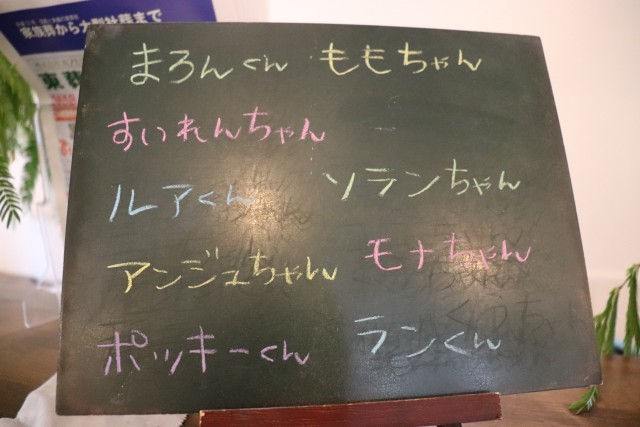 家族葬から大型社葬まで
まろんくん ももちゃん
すいれんちゃん
ルアくん ソランちゃん
アンジュちゃん モナちゃん
ポッキーくん ランくん